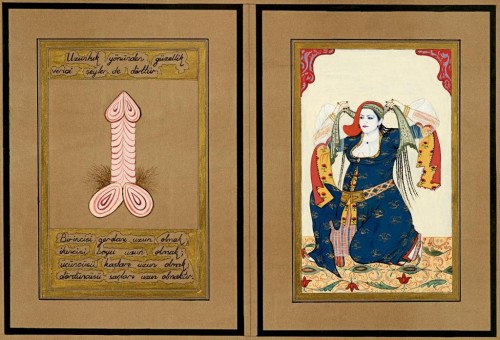 Uzunluk yönünden güzellik
verici şeyler de dörttür.
Birincisi gerdanı uzun olmak,
ikincisi boyu uzun olmak,
üçüncüsü kaşları uzun olmak,
dördüncüsü saçları uzun olmaktır.